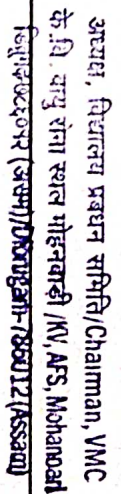 अध्यक्ष, विद्यालय प्रबंधन समिति/Chairman, VMC
के.वि. वायु सेना स्थल मोहनबाड़ी /KV, AFS, Mohanbari
(असम)/Dibrugarh-786012 (Assam)